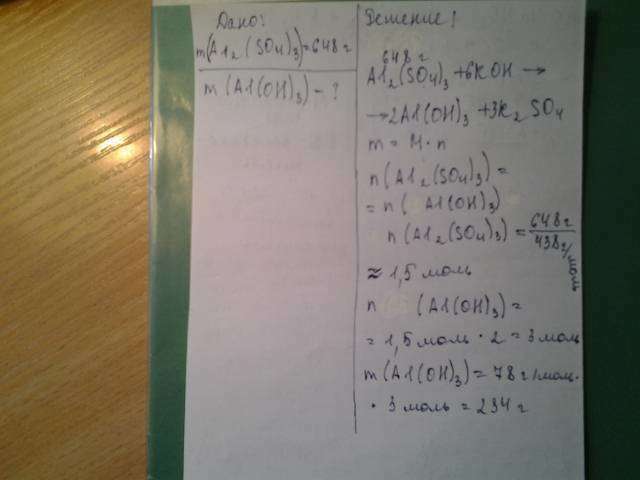 Дано:
m(Al₂(SO₄)₃)=648г
m(Al(OH)₃)-?
Решение!
648г
Al₂(SO₄)₃+6KOH →
→2Al(OH)₃+3K₂SO₄
m=M·n
n(Al₂(SO₄)₃)=
=n(Al(OH)₃)
n(Al₂(SO₄)₃)=648г/438г/моль
≈1,5 моль
n (Al(OH)₃)=
=1,5 моль·2=3 моль
m(Al(OH)₃)=78г/моль·
·3 моль=234г